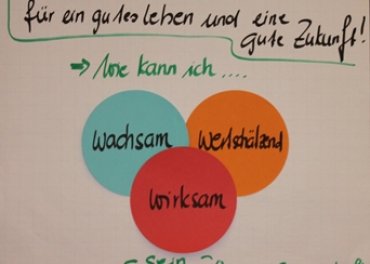 für ein gutes leben und eine
gute Zukunft!
→ Wie kann ich ....
Wachsam
Wertschätzend
Wirksam
sein